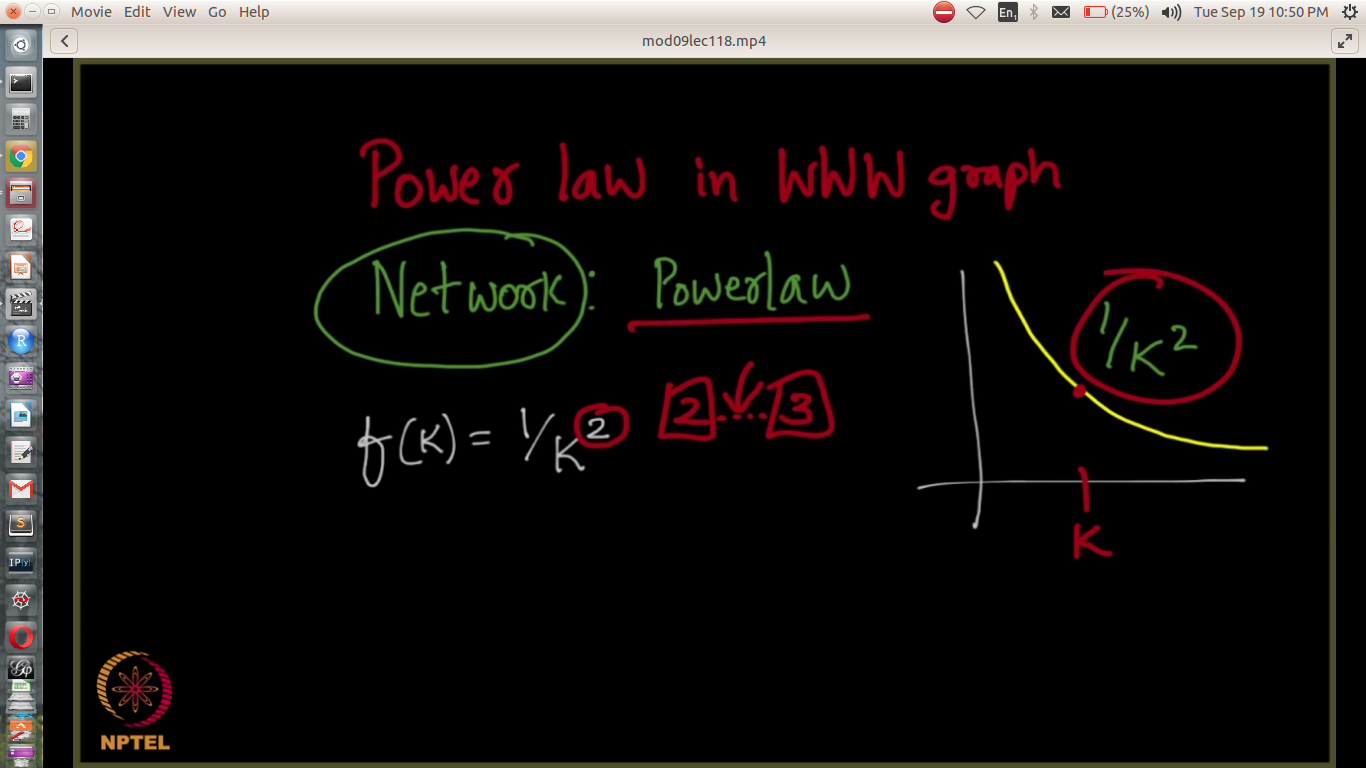 Movie Edit View Go Help En1 (25%) Tue Sep 19 10:50 PM
mod09lec118.mp4
Power law in WWW graph
Network: Powerlaw
1/K²
f(K) = 1/K² 2 .... 3
K
NPTEL
R
S
IP[y]: